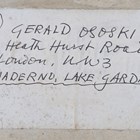 GERALD OSOSKI
Heath Hurst Road
London, NW3
MADERNO, LAKE GARDA